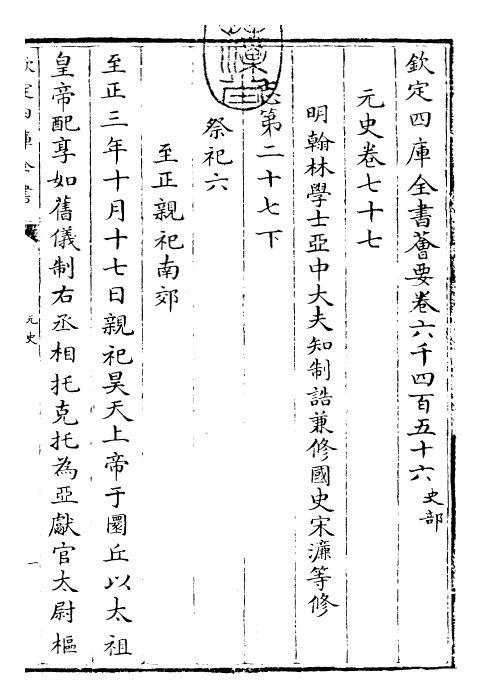 欽定四庫全書薈要卷六千四百五十六 史部
元史卷七十七
明翰林學士亞中大夫知制誥兼修國史宋濂等修
志第二十七下
祭祀六
至正親祀南郊
至正三年十月十七日親祀昊天上帝于圜丘以太祖
皇帝配享如舊儀制右丞相托克托為亞獻官太尉樞
欽定四庫全書
元史
一